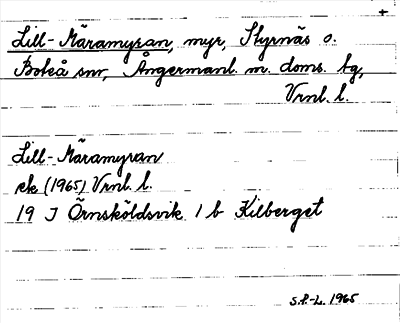 +
Lill-Käramyran, myr, Styrnäs s.
Boteå snr, Ångermanl. m. doms. bg,
Vrnl. l.
Lill-Käramyran
ek (1965) Vrnl. l.
19 J Örnsköldsvik 1 b Kilberget
S.P.-L. 1965